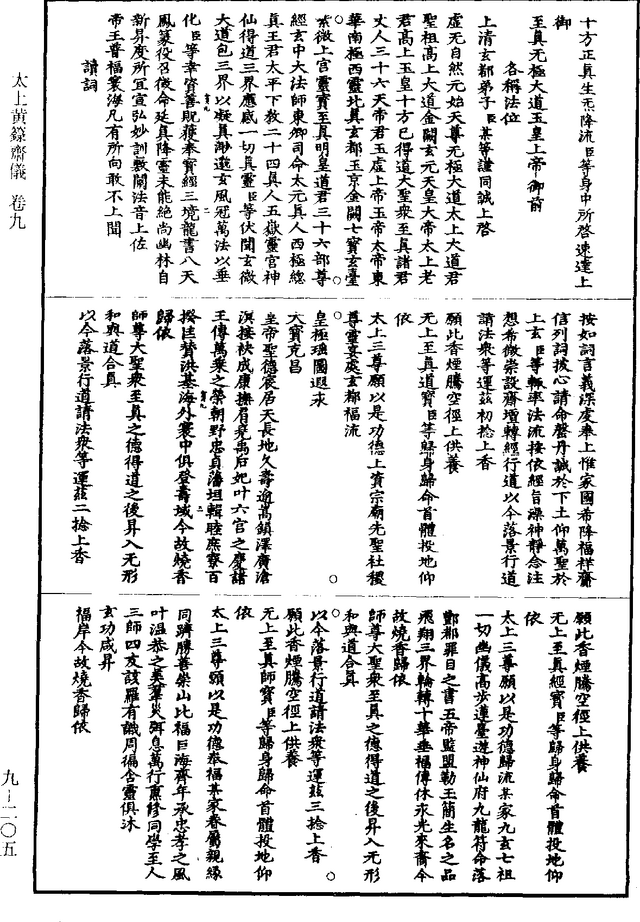 太上黃籙齋儀　卷九
九－二〇五
十方正真生炁降流臣等身中所啓速達上
御
至真无極大道玉皇上帝御前
各稱法位
上清玄都弟子臣某等謹同誠上啓
虛无自然元始天尊无極大道太上大道君
聖祖高上大道金闕玄元天皇大帝太上老
君高上玉皇十方已得道大聖衆至真諸君
丈人三十六天帝君玉虛上帝玉帝大帝東
華南極西靈北真玄都玉京金闕七寶玄臺
紫微上宮靈寶至真明皇道君三十六部尊
經玄中大法師東鄉司命太元真人西極緫
真王君太平下教二十四真人五嶽靈官神
仙得道三界應感一切真靈臣等伏聞玄微
大道包三界以凝真渺邈玄風冠萬法以垂
化臣等幸資善貺獲奉寶經三境龍書八天
鳳篆役召徵命延真降靈未能絶尚幽林自
新昇度所宜宣弘妙訓敷闡法音上佐
帝王普福寰海凡有所向敢不上聞
讀詞
按如詞言義深虔奉上惟家國希降福祥齋
信列詞披心請命罄丹誠於下土仰萬聖於
上玄臣等輒率法流按依經旨澡神靜念注
想希微崇設齋壇轉經行道以今落景行道
請法衆等運茲初捻上香
願此香煙騰空徑上供養
无上至真道寶臣等歸身歸命首體投地仰
依
太上三尊願以是功德上資宗廟先聖社稷
尊靈宴處玄都福流
皇極瑤圖遐永
大寶克昌
皇帝聖德宸居天長地久壽逾嵩鎮澤廣滄
溟接袂成康撫肩堯禹后妃叶六宮之慶諸
王傳萬乘之榮朝野忠貞藩垣輯睦庶寮百
揆匡贊洪基海外寰中俱登壽域今故燒香
歸依
師尊大聖衆至真之德得道之後昇入无形
和與道合真
以今落景行道請法衆等運茲二捻上香
願此香煙騰空徑上供養
无上至真經寶臣等歸身歸命首體投地仰
依
太上三尊願以是功德歸流某家九玄七祖
一切幽儀高步蓮臺遊神仙府九龍符命落
酆都罪目之書五帝監盟勒玉簡生名之品
飛翔三界輪轉十華垂福傳休永光來裔今
故燒香歸依
師尊大聖衆至真之德得道之後昇入无形
和與道合真
以今落景行道請法衆等運茲三捻上香
願此香煙騰空徑上供養
无上至真師寶臣等歸身歸命首體投地仰
依
太上三尊願以是功德奉福某家眷屬親緣
同躋勝善崇山比福巨海齊年承忠孝之風
叶溫恭之美羣災弭息萬行熏修同學至人
三師四友該羅有識周徧含靈俱沐
玄功咸昇
福岸今故燒香歸依